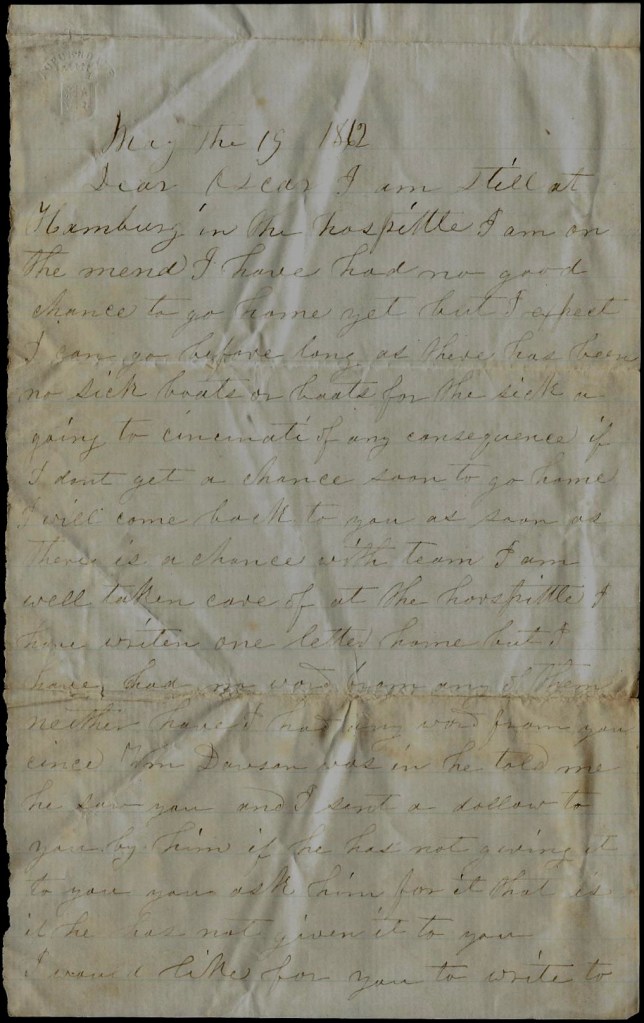 May the 19 1862
Dear Oscar I am still at
Hamburg in the hospittle I am on
the mend I have had no good
chance to go home yet but I expect
I can go before long as there has been
no sick boats or boats for the sick a
going to cincinati of any consequence if
I dont get a chance soon to go home
I will come back to you as soon as
there is a chance with team I am
well taken care of at the horspittle I
have writen one letter home but I
have had no word from any of them
neither have I had any word from you
cince Tim Dawson was in he told me
he saw you and I sent a dollow to
you by him if he has not giving it
to you you ask him for it that is
if he has not given it to you
I would like for you to write to